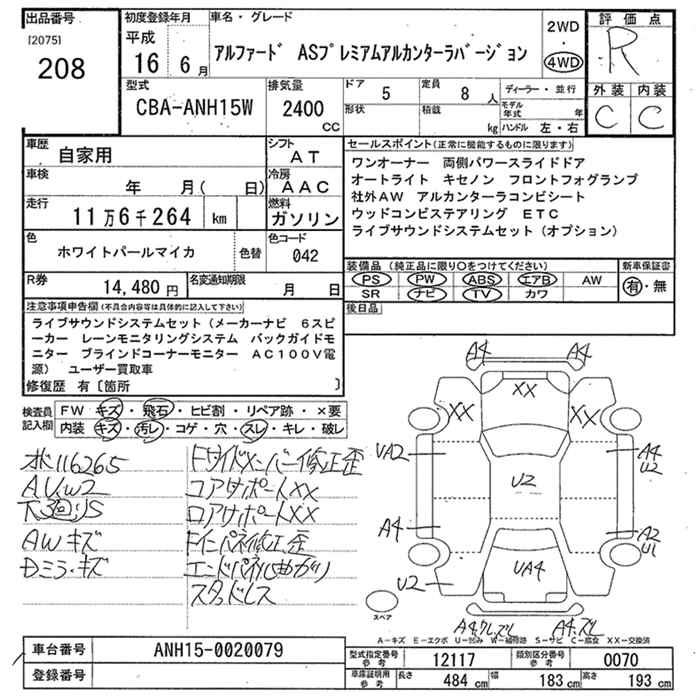 出品番号
[2075]
208
初度登録年月
平成
16 6月
車名・グレード
アルファード ASプレミアムアルカンターラバージョン
2WD
・
4WD
評価点
R
外装 内装
C C
型式
CBA-ANH15W
排気量
2400
CC
ドア
5
定員
8 人
形状
積載
kg
ディーラー・並行
モデル年式 年
ハンドル 左・右
車歴
自家用
シフト
AT
車検
年 月( 日)
冷房
AAC
走行
11万6千264 km
燃料
ガソリン
色
ホワイトパールマイカ
色替
色コード
042
R券
14,480円
名変通知期限
月 日
セールスポイント(正常に機能するものに限ります)
ワンオーナー 両側パワースライドドア
オートライト キセノン フロントフォグランプ
社外AW アルカンターラコンビシート
ウッドコンビステアリング ETC
ライブサウンドシステムセット(オプション)
装備品(純正品に限り○をつけてください)
PS PW ABS エアB AW
SR ナビ TV カワ
新車保証書
有・無
後日品
注意事項申告欄(不具合内容等は具体的に記入して下さい)
ライブサウンドシステムセット(メーカーナビ 6スピ
ーカー レーンモニタリングシステム バックガイドモ
ニター ブラインドコーナーモニター AC100V電
源) ユーザー買取車
修復歴 有〔箇所 〕
検査員記入欄
FW キズ・飛石・ヒビ割・リペア跡・×要
内装 キズ・汚レ・コゲ・穴・スレ・キレ・破レ
116265
AUW2
下廻りS
AWキズ
Dミラーキズ
Fサイドメンバー修正歪
コアサポートXX
ロアサポートXX
Fインパネ修正歪
エンドパネル曲がり
スタッドレス
A4 A4
XX
XX XX
UA2
U2
A4
U2
A4
A2
U1
UA4
U2
スペア
A4.ワレ.ズレ A4.ズレ
A－キズ E－エクボ U－凹み W－補修跡 S－サビ C－腐食 XX－交換済
車台番号
ANH15-0020079
登録番号
型式指定番号 参考
12117
類別区分番号 参考
0070
車庫証明用 参考
長さ 484 cm
幅 183 cm
高さ 193 cm